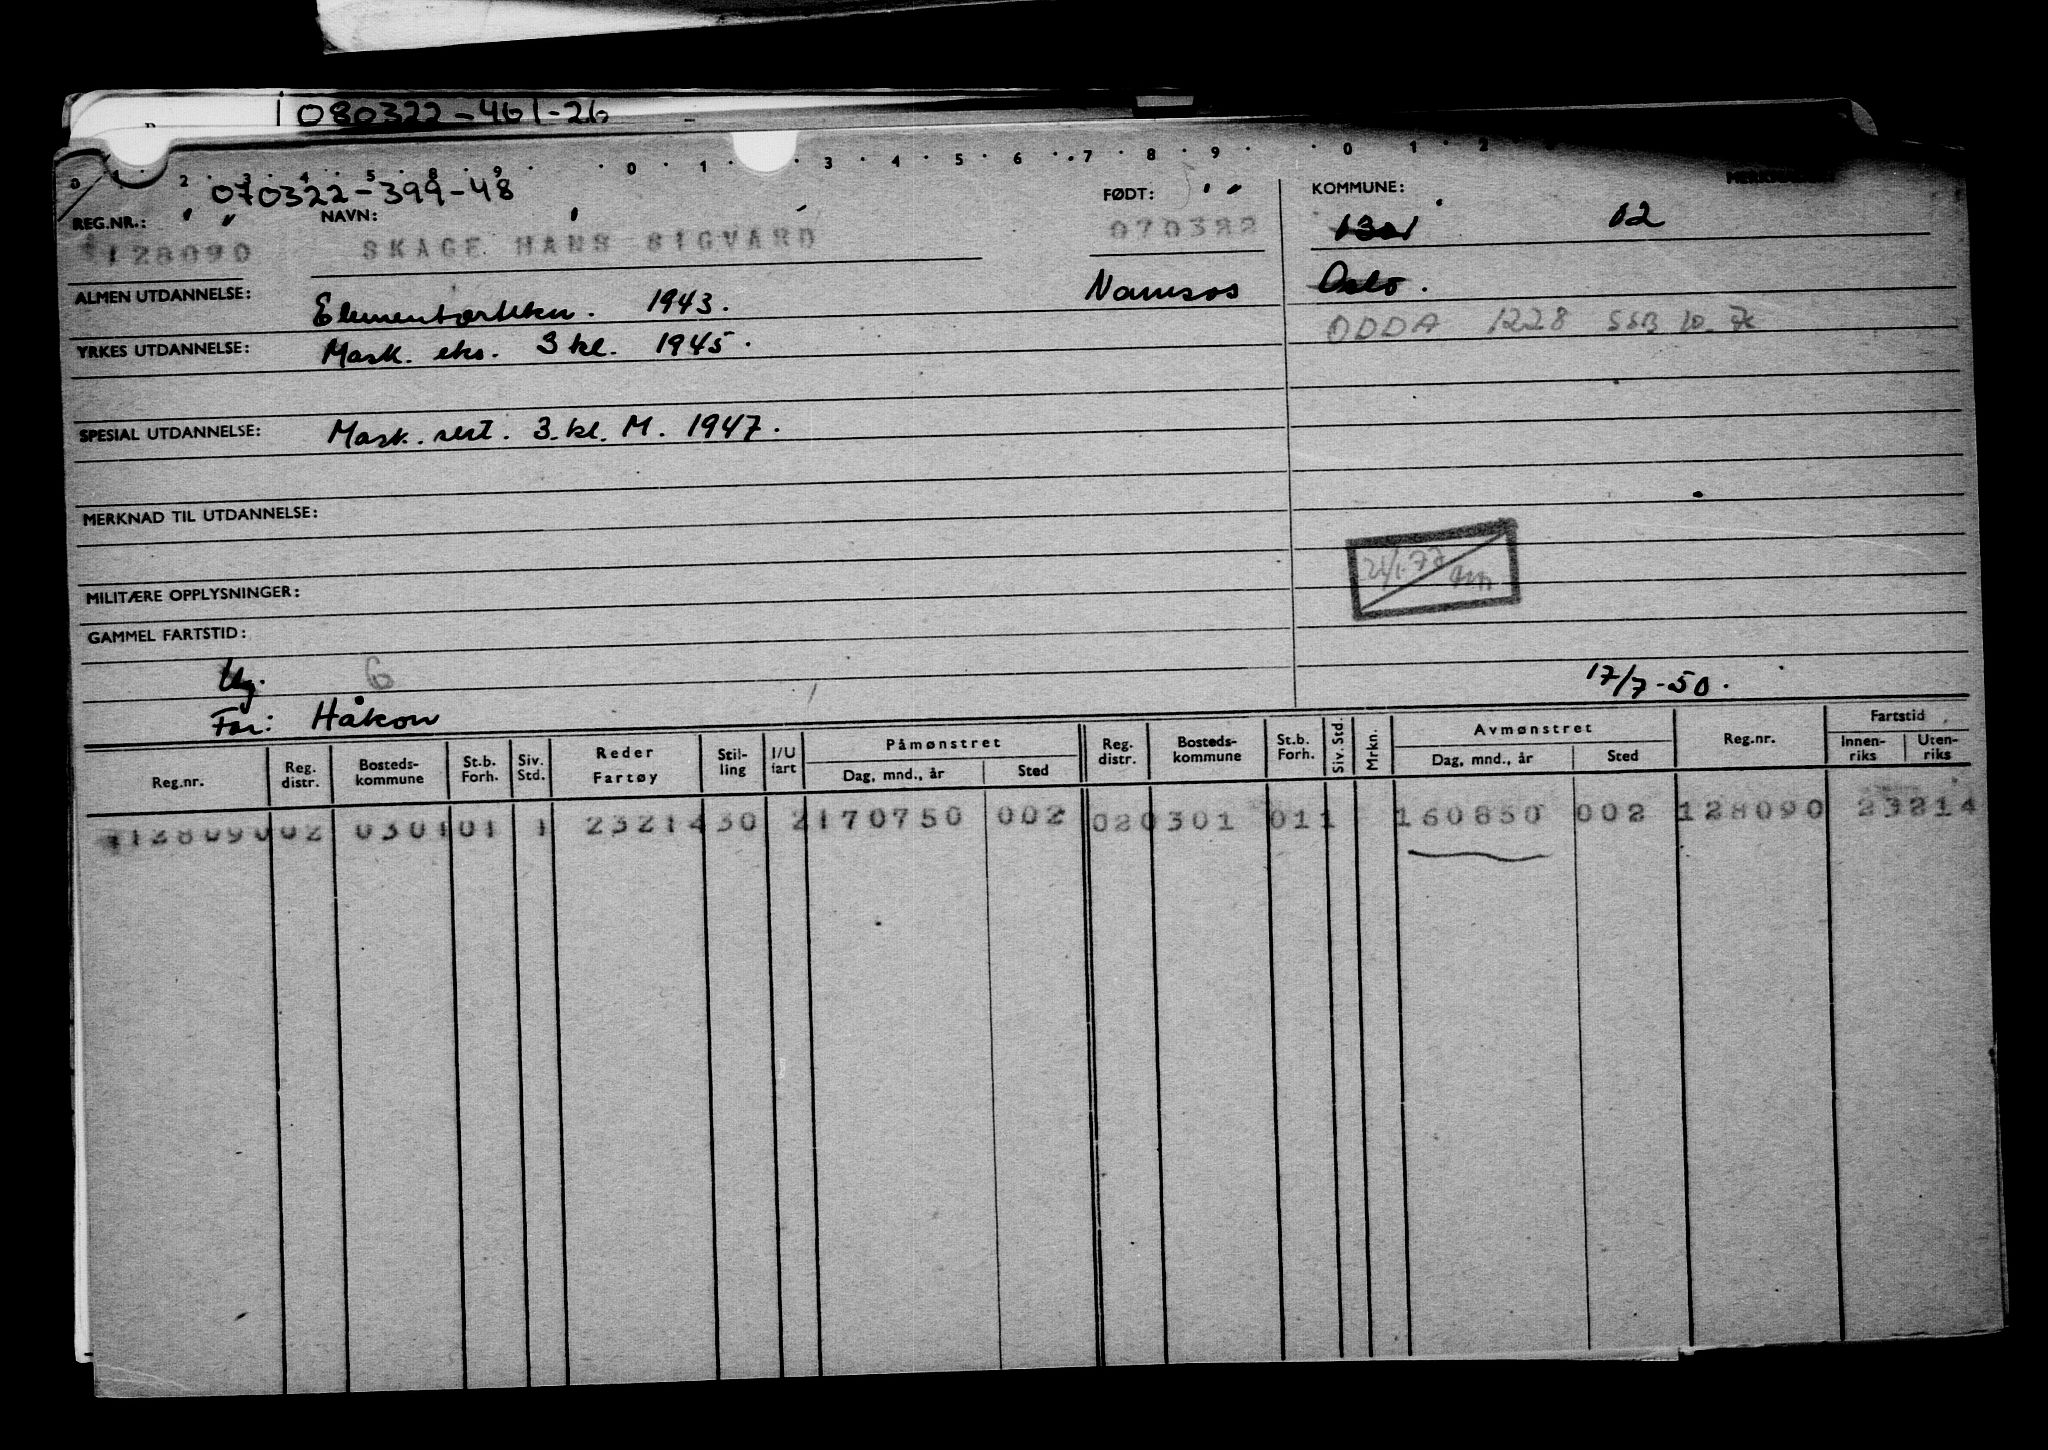 080322-461-26
0 1 2 3 4 5 8 9 0 1 3 4 5 6 7 8 9 0 1 2
070322-399-48
REG.NR.: NAVN: FØDT: KOMMUNE:
128090 SKAGE HANS SIGVARD 070322 1301 02
Namsos Oslo.
ALMEN UTDANNELSE: Elementærtekn. 1943.
ODDA 1228 SSB 10
YRKES UTDANNELSE: Mask. eks. 3 kl. 1945.
SPESIAL UTDANNELSE: Mask. sert. 3. kl. M. 1947.
MERKNAD TIL UTDANNELSE:
MILITÆRE OPPLYSNINGER:
GAMMEL FARTSTID:
Ug. 6
17/7-50.
Far: Håkon
Reg.nr. Reg. distr. Bosteds-kommune St.b. Forh. Siv. Std. Reder Fartøy Stil-ling I/U fart Påmønstret Dag, mnd., år Sted Reg. distr. Bosteds-kommune St.b. Forh. Siv. Std. Mrkn. Avmønstret Dag, mnd., år Sted Reg.nr. Fartstid Innen-riks Uten-riks
128090 02 0301 01 1 23214 30 2 170750 002 02 0301 01 1 160850 002 128090 23214